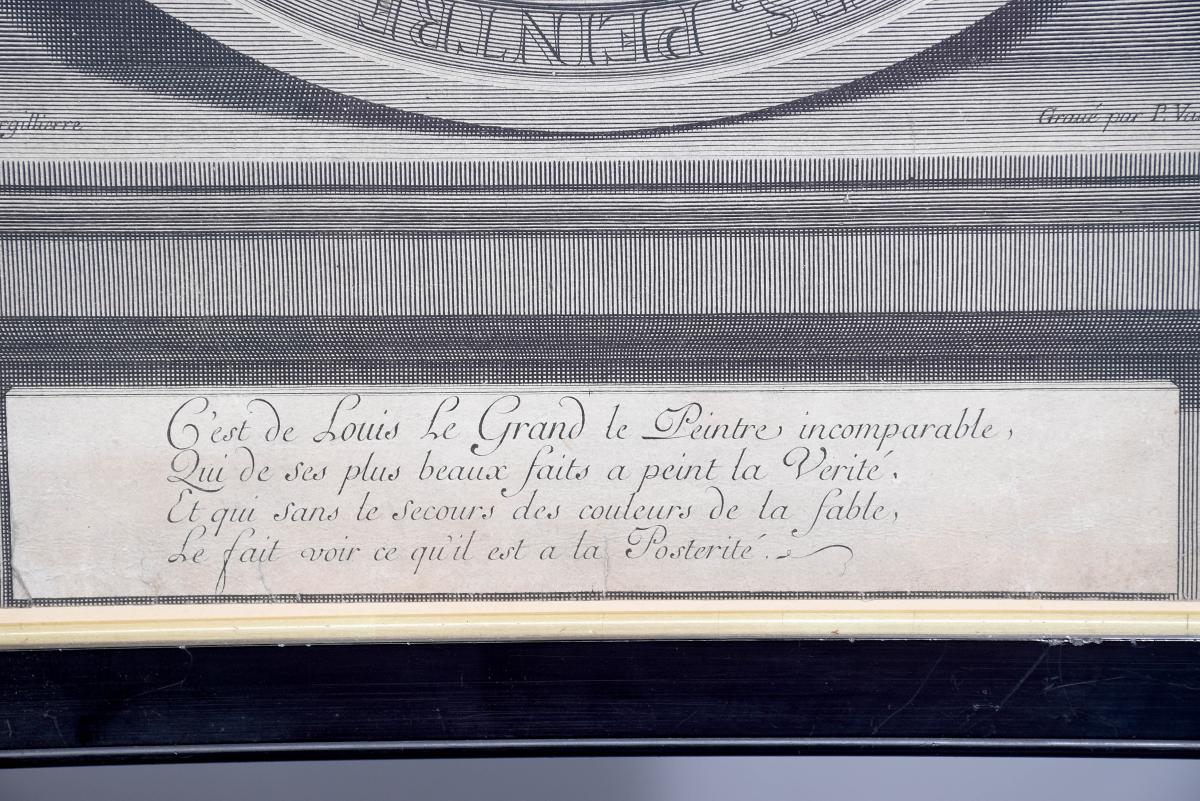 S. PEINTRE
rgillierre
Gravé par P. Va
C'est de Louis Le Grand le Peintre incomparable,
Qui de ses plus beaux faits a peint la Verité.
Et qui sans le secours des couleurs de la fable,
Le fait voir ce qu'il est a la Posterité.